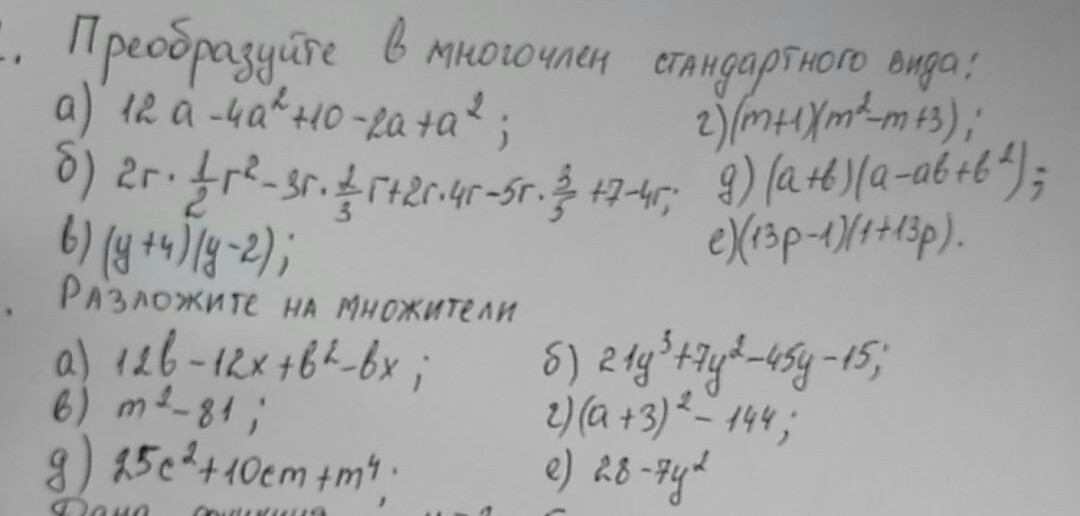 Преобразуйте в многочлен стандартного вида:
а) 12a - 4a² + 10 - 2a + a²; г) (m+1)(m² - m + 3);
б) 2r · 1/2 r² - 3r · 1/3 r + 2r · 4r - 5r · 3/5 + 7 - 4r; д) (a+b)(a - ab + b²);
в) (y+4)(y-2); е) (13p-1)(1+13p).
Разложите на множители
а) 12b - 12x + b² - bx; б) 21y³ + 7y² - 45y - 15;
в) m² - 81; г) (a+3)² - 144;
д) 25c² + 10cm + m⁴; е) 28 - 7y²
Дана